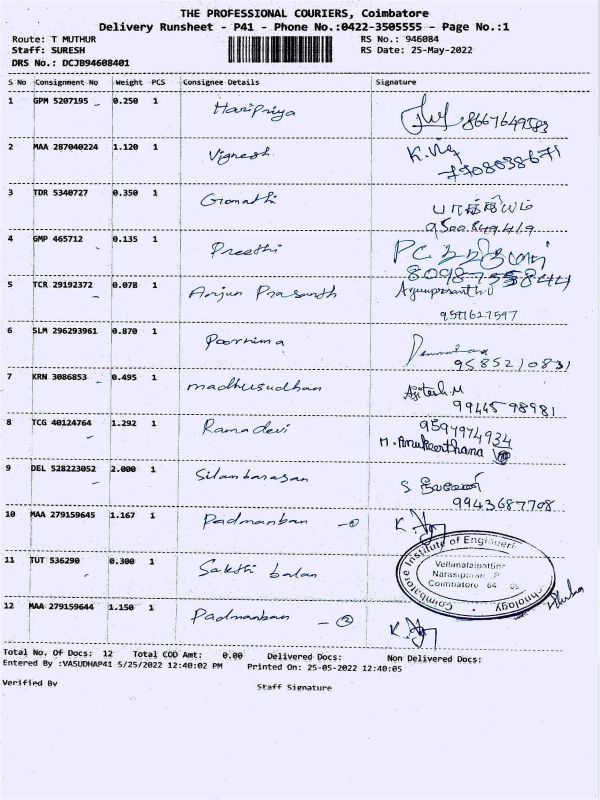 THE PROFESSIONAL COURIERS, Coimbatore
Delivery Runsheet - P41 - Phone No.:0422-3505555 - Page No.:1
Route: T MUTHUR RS No.: 946084
Staff: SURESH RS Date: 25-May-2022
DRS No.: DCJB94608401
S No Consignment No Weight PCS Consignee Details Signature
1 GPM 5207195 0.250 1 Haripriya 8667649583
2 MAA 287040224 1.120 1 Vignesh K.Vig
7708038671
3 TDR 5340727 0.350 1 Gomathi
9500849419
4 GMP 465712 0.135 1 Preethi
8098755844
5 TCR 29192372 0.078 1 Arjun Prasanth
9571627597
6 SLM 296293961 0.870 1 Poornima
9585210831
7 KRN 3086853 0.495 1 madhusudhan Ajitesh.M
9944598981
8 TCG 40124764 1.292 1 Ramadevi 9597974934
M. Anukeerthana
9 DEL 528223052 2.000 1 Silambarasan
9943687708
10 MAA 279159645 1.167 1 Padmanban - ①
11 TUT 536290 0.300 1 Sakthi balan
Coimbatore Institute of Engineeri
Vellimalaipattin
Narasipuram P
Coimbatore 64
12 MAA 279159644 1.150 1 Padmanban - ②
Total No. Of Docs: 12 Total COD Amt: 0.00 Delivered Docs: Non Delivered Docs:
Entered By :VASUDHAP41 5/25/2022 12:40:02 PM Printed On: 25-05-2022 12:40:05
Verified By Staff Signature